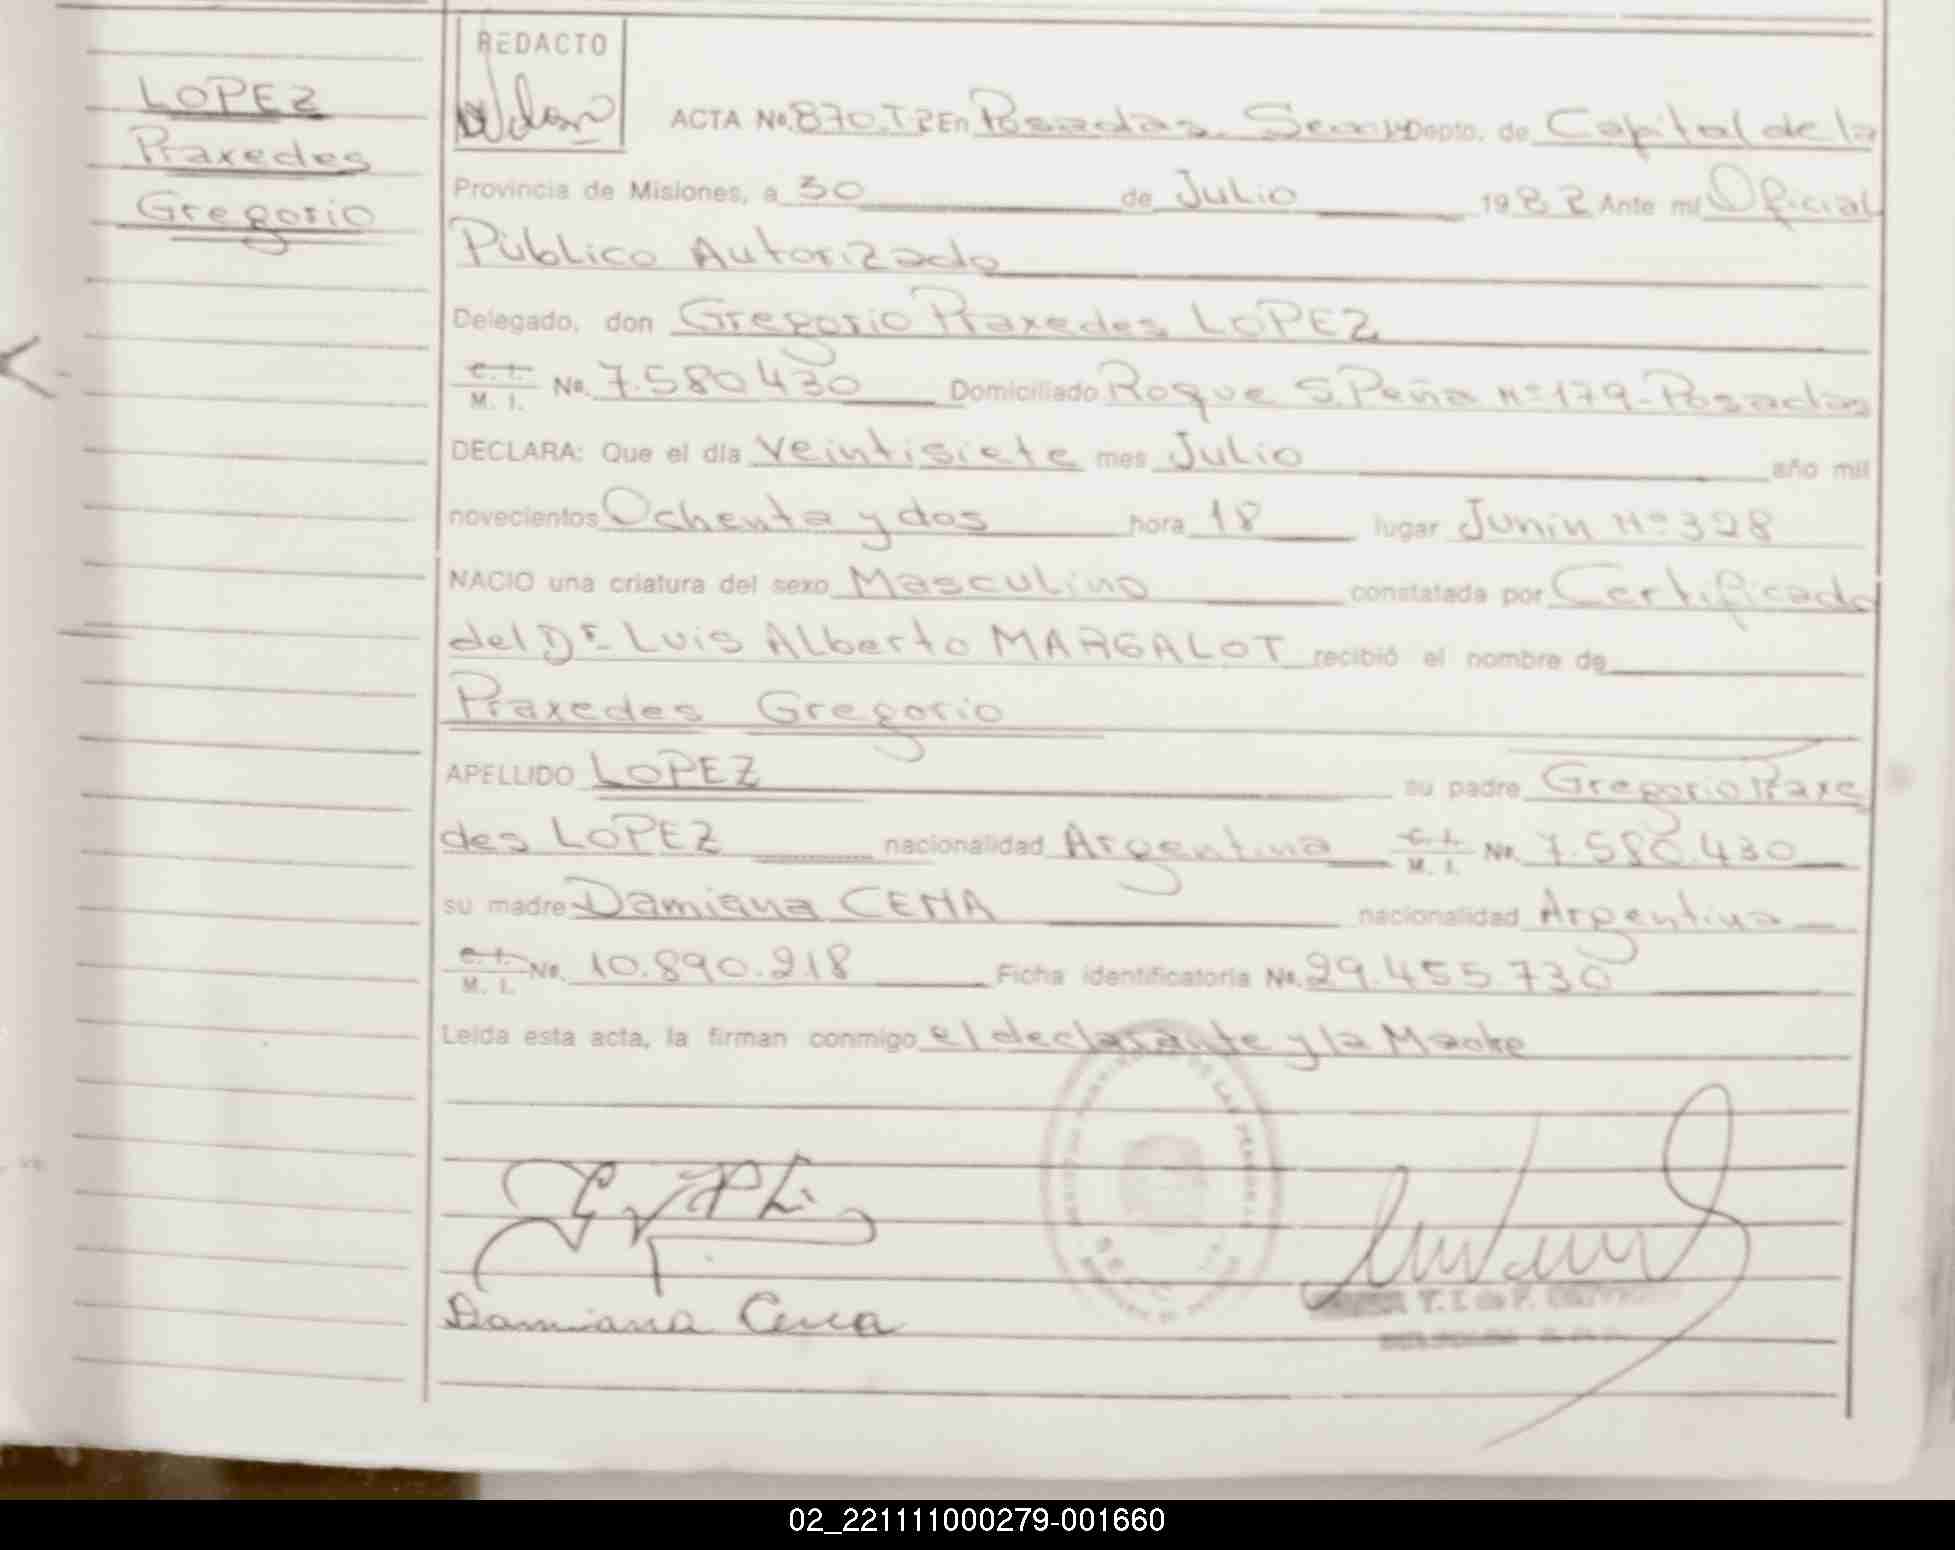 LOPEZ
Praxedes
Gregorio
REDACTO
ACTA No. 870. T2 En Posadas. Depto. de Capital de la
Provincia de Misiones, a 30 de Julio 1982 Ante mí Oficial
Público Autorizado
Delegado, don Gregorio Praxedes LOPEZ
C. I.
M. I. No. 7.580430 Domiciliado Roque S. Peña Nº 179-Posadas
DECLARA: Que el día veintisiete mes Julio año mil
novecientos Ochenta y dos hora 18 lugar Junín Nº 328
NACIO una criatura del sexo Masculino constatada por Certificado
del Dr Luis Alberto MARGALOT recibió el nombre de
Praxedes Gregorio
APELLIDO LOPEZ su padre Gregorio Praxe
des LOPEZ nacionalidad Argentina C. I. M. I. No. 7.580.430
su madre Damiana CENA nacionalidad Argentina
C. I.
M. I. No. 10.890.218 Ficha identificatoria No. 29.455.730
Leída esta acta, la firman conmigo el declarante y la Madre
Damiana Cena
02_221111000279-001660